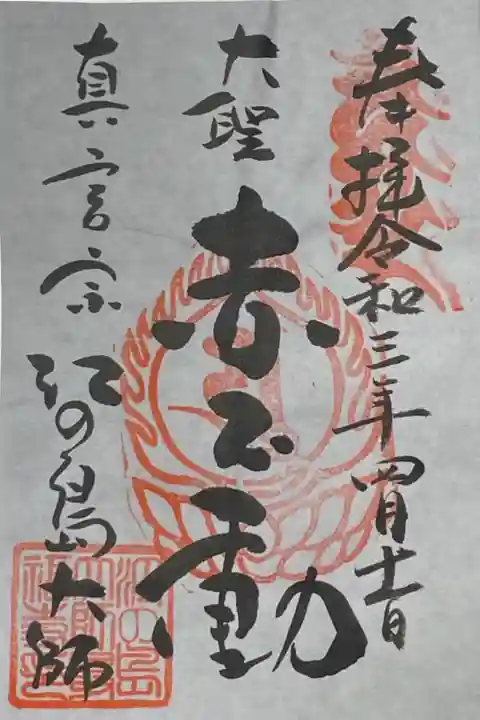 奉拝 令和三年四月十一日
大聖
赤不動
真言宗 江の島大師